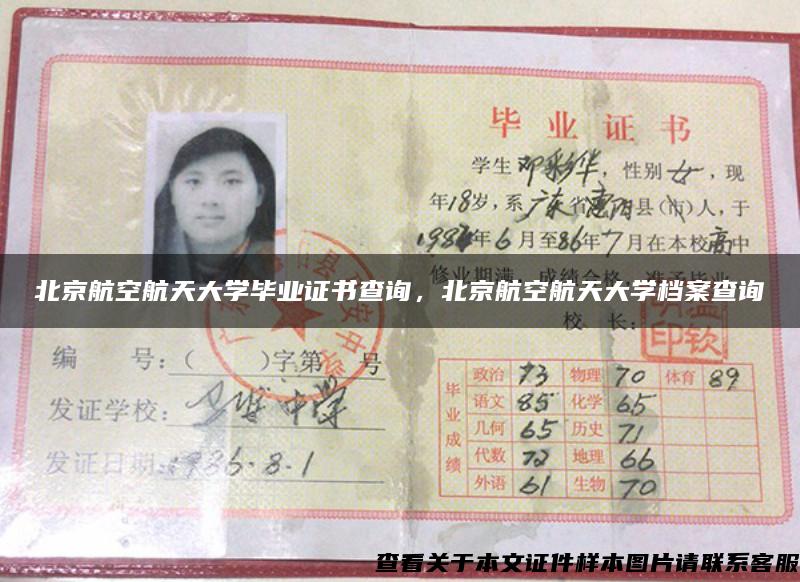 毕业证书
学生邓彩华，性别女，现
年18岁，系广东省惠阳县(市)人，于
1984年6月至86年7月在本校高中
修业期满，成绩合格，准予毕业
北京航空航天大学毕业证书查询，北京航空航天大学档案查询
校 长：
编 号：（ ）字第 号
发证学校：
发证日期：1986.8.1
毕业成绩
政治 73 物理 70 体育 89
语文 85 化学 65
几何 65 历史 71
代数 72 地理 66
外语 61 生物 70
查看关于本文证件样本图片请联系客服